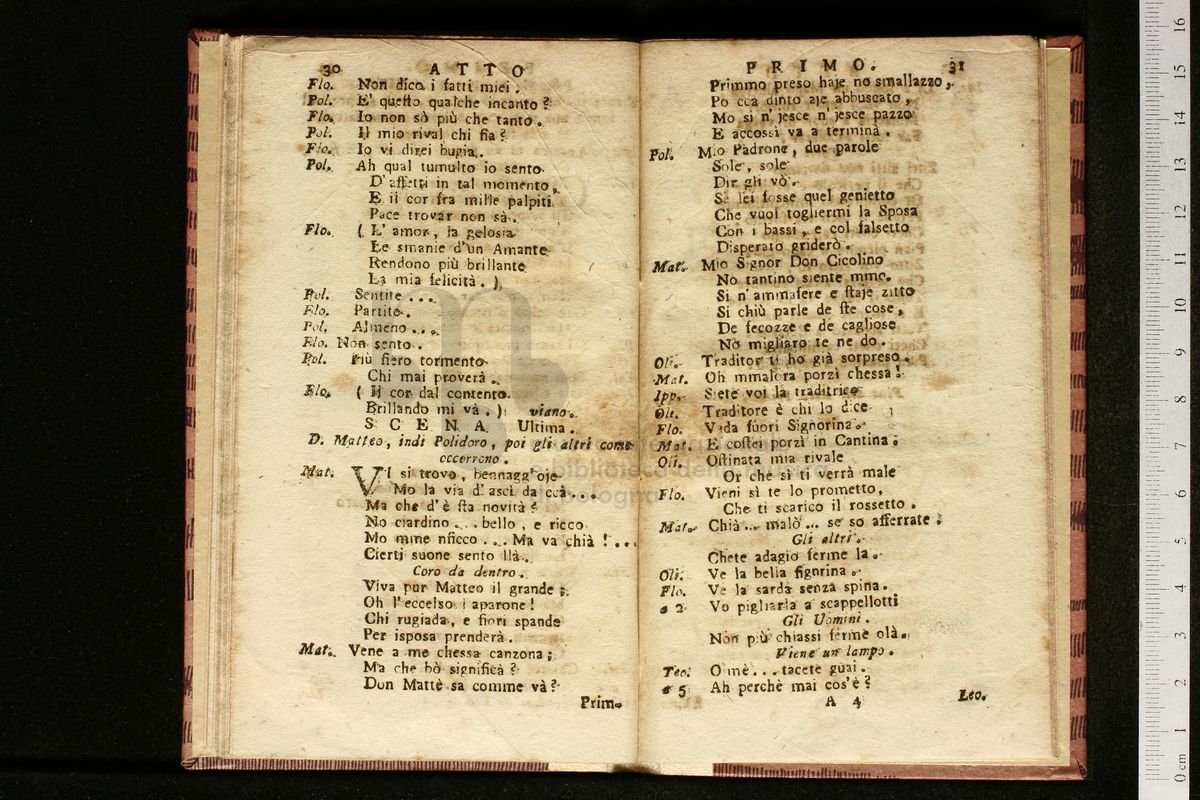 30 ATTO
Flo. Non dico i fatti miei.
Pol. E' questo qualche incanto?
Flo. Io non sò più che tanto.
Pol. Il mio rival chi fia?
Flo. Io vi direi bugia.
Pol. Ah qual tumulto io sento
D'affetti in tal momento,
E il cor fra mille palpiti
Pace trovar non sà.
Flo. ( L'amor, la gelosia
Le smanie d'un Amante
Rendono più brillante
La mia felicità. )
Pol. Sentite ...
Flo. Partite.
Pol. Almeno ...
Flo. Non sento.
Pol. Più fiero tormento
Chi mai proverà.
Flo. ( Il cor dal contento
Brillando mi và. ) viano.
SCENA Ultima.
D. Matteo, indi Polidoro, poi gli altri come
occorrono.
Mat. Vì si trovo, bennagg'oje
Mo la via d'ascì da ccà...
Ma che d'è sta novità?
No ciardino ... bello, e ricco
Mo mme nficco ... Ma va chià! ...
Cierti suone sento llà.
Coro da dentro.
Viva pur Matteo il grande;
Oh l'eccelso aparone!
Chi rugiada, e fiori spande
Per isposa prenderà.
Mat. Vene a me chessa canzona;
Ma che bò significà?
Don Mattè sa comme và?
Prim-
PRIMO. 31
Primmo preso haje no smallazzo,
Po ccà dinto aje abbuscato,
Mo si n'jesce n'jesce pazzo
E accossì va a terminà.
Pol. Mio Padrone, due parole
Sole, sole
Dir gli vò.
Se lei fosse quel genietto
Che vuol togliermi la Sposa
Con i bassi, e col falsetto
Disperato griderò.
Mat. Mio Signor Don Cicolino
No tantino siente mme.
Si n'ammafere e staje zitto
Si chiù parle de ste cose,
De fecozze e de cagliose
No migliaro te ne do.
Oli. Traditor ti ho già sorpreso.
Mat. Oh mmalora porzì chessa!
Ipp. Siete voi la traditrice
Oli. Traditore è chi lo dice
Flo. Vada fuori Signorina.
Mat. E costei porzì in Cantina;
Oli. Ostinata mia rivale
Or che sì ti verrà male
Flo. Vieni sì te lo prometto,
Che ti scarico il rossetto.
Mat. Chià ... malò ... se so afferrate!
Gli altri.
Chete adagio ferme la.
Oli. Ve la bella signorina.
Flo. Ve la sarda senza spina.
a 2 Vo pigliarla a scappellotti
Gli Uomini.
Non più chiassi ferme olà.
Viene un lampo.
Teo. O mè ... tacete guai.
a 5 Ah perchè mai cos'è?
A 4 Leo.